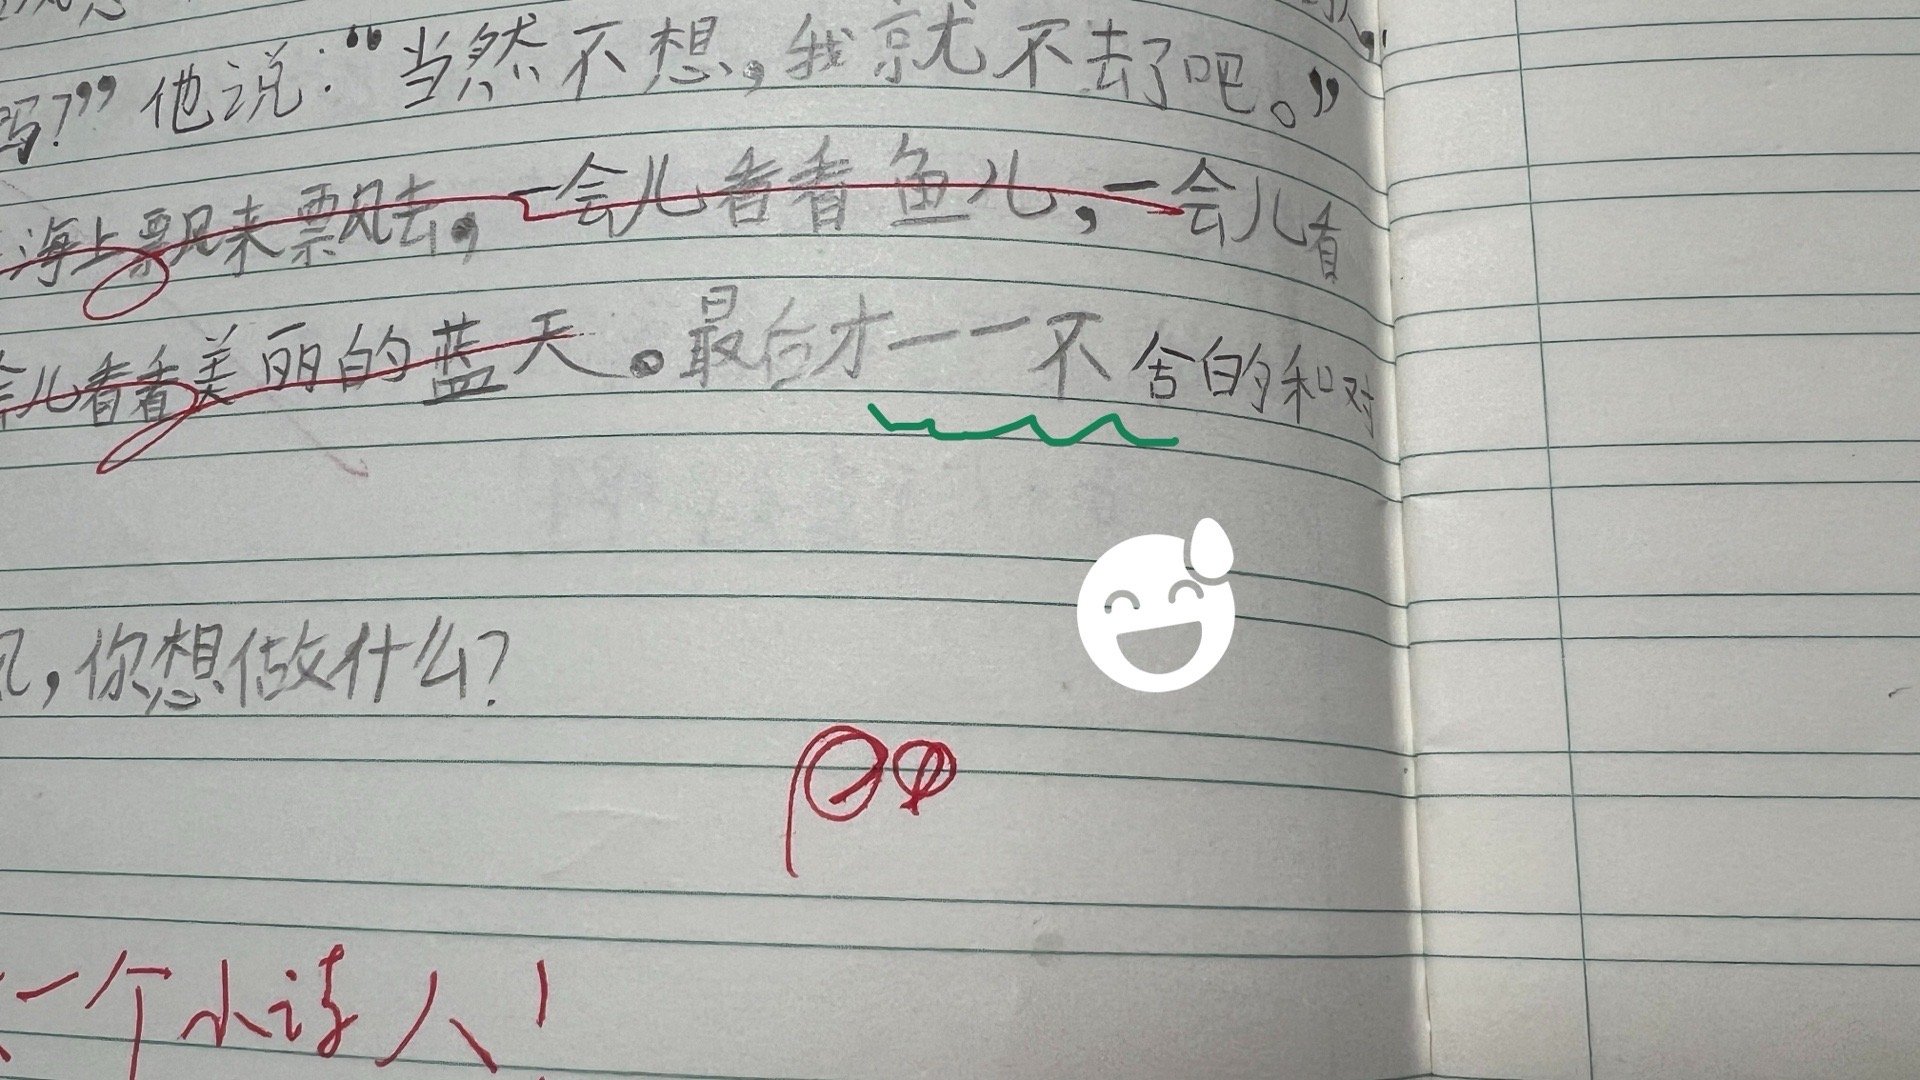 吗？”他说：“当然不想，我就不去了吧。”
海上飘来飘去，一会儿看看鱼儿，一会儿看
会儿看看美丽的蓝天。最后才一一不舍的和对
你想做什么？
一个小诗人！